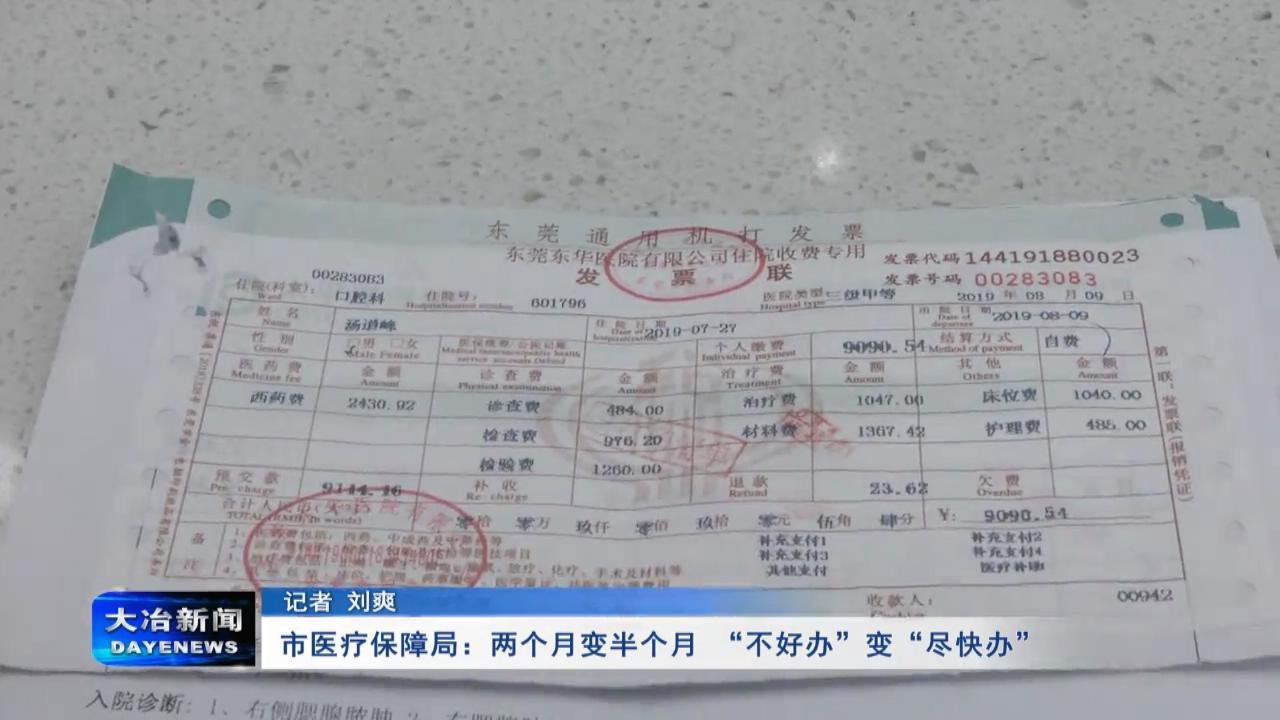 东莞通用机打发票
东莞东华医院有限公司住院收费专用
发票联
发票代码 144191880023
发票号码 00283083
00283083
住院(科室): 口腔科 住院号: 601796 医院类型 三级甲等 2019 年 08 月 09 日
Ward Hospitalization number Hospital type
姓名 汤道峰 住院日期 2019-07-27 出院日期 2019-08-09
Name Date of hospitalization Date of departure
性别 □男 □女 医保缴费/公医记账 个人缴费 9090.54 结算方式 自费
Gender Male Female Individual payment Method of payment
医药费 金额 诊查费 金额 治疗费 金额 其他 金额
Medicine fee Amount Physical examination Amount Treatment Amount Others Amount
西药费 2430.92 诊查费 484.00 治疗费 1047.00 床位费 1040.00
检查费 976.20 材料费 1367.42 护理费 485.00
检验费 1260.00
预交款 9114.16 补收 退款 23.62 欠费
Pre-charge Re-charge Refund Overdue
合计人民币(大写) 零拾 零万 玖仟 零佰 玖拾 零元 伍角 肆分 ¥: 9090.54
备注
补充支付1 补充支付2
补充支付3 补充支付4
其他支付 医疗补助
收款人: 00942
第 联:发票联(报销凭证)
大冶新闻
DAYENEWS
记者 刘爽
市医疗保障局：两个月变半个月 “不好办”变“尽快办”
入院诊断: 1、右侧腮腺脓肿